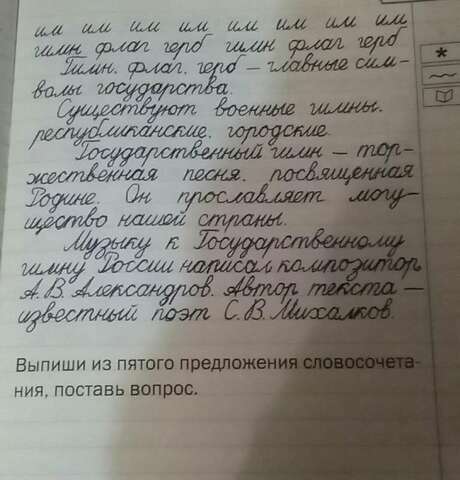 им им им им им им им им
гимн флаг герб гимн флаг герб
Гимн, флаг, герб – главные сим-
волы государства.
Существуют военные гимны,
республиканские, городские.
Государственный гимн – тор-
жественная песня, посвященная
Родине. Он прославляет могу-
щество нашей страны.
Музыку к Государственному
гимну России написал композитор
А.В. Александров. Автор текста –
известный поэт С.В. Михалков.
Выпиши из пятого предложения словосочета-
ния, поставь вопрос.